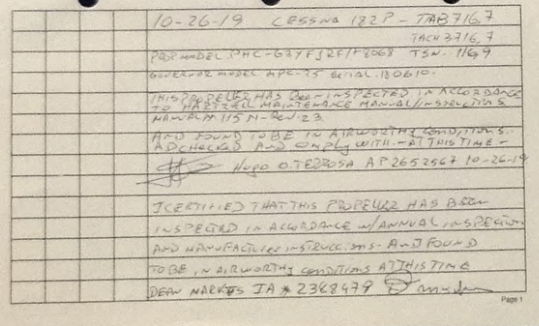 10-26-19 CESSNA 182P - TAB 716,7
TACH 3716,7
PROP MODEL. PHC-G3YF-1RF/F8068 TSN. 1169
GOVERNOR MODEL SERIAL.180610.
THIS PROPELLER HAS BEEN INSPECTED IN ACCORDANCE
TO HARTZELL MAINTENANCE MANUAL/INSTRUCTIONS
MANUAL# 115N-Rev.23
AND FOUND TO BE IN AIRWORTHY CONDITIONS.
AD CHECKED AND COMPLY WITH - AT THIS TIME -
HUGO O. AP 2652567 10-26-19
I CERTIFIED THAT THIS PROPELLER HAS BEEN
INSPECTED IN ACCORDANCE W/ANNUAL INSPECTION
AND MANUFACTURE INSTRUCTIONS. AND FOUND
TO BE IN AIRWORTHY CONDITIONS AT THIS TIME
DEAN IA # 2368479
Page 1